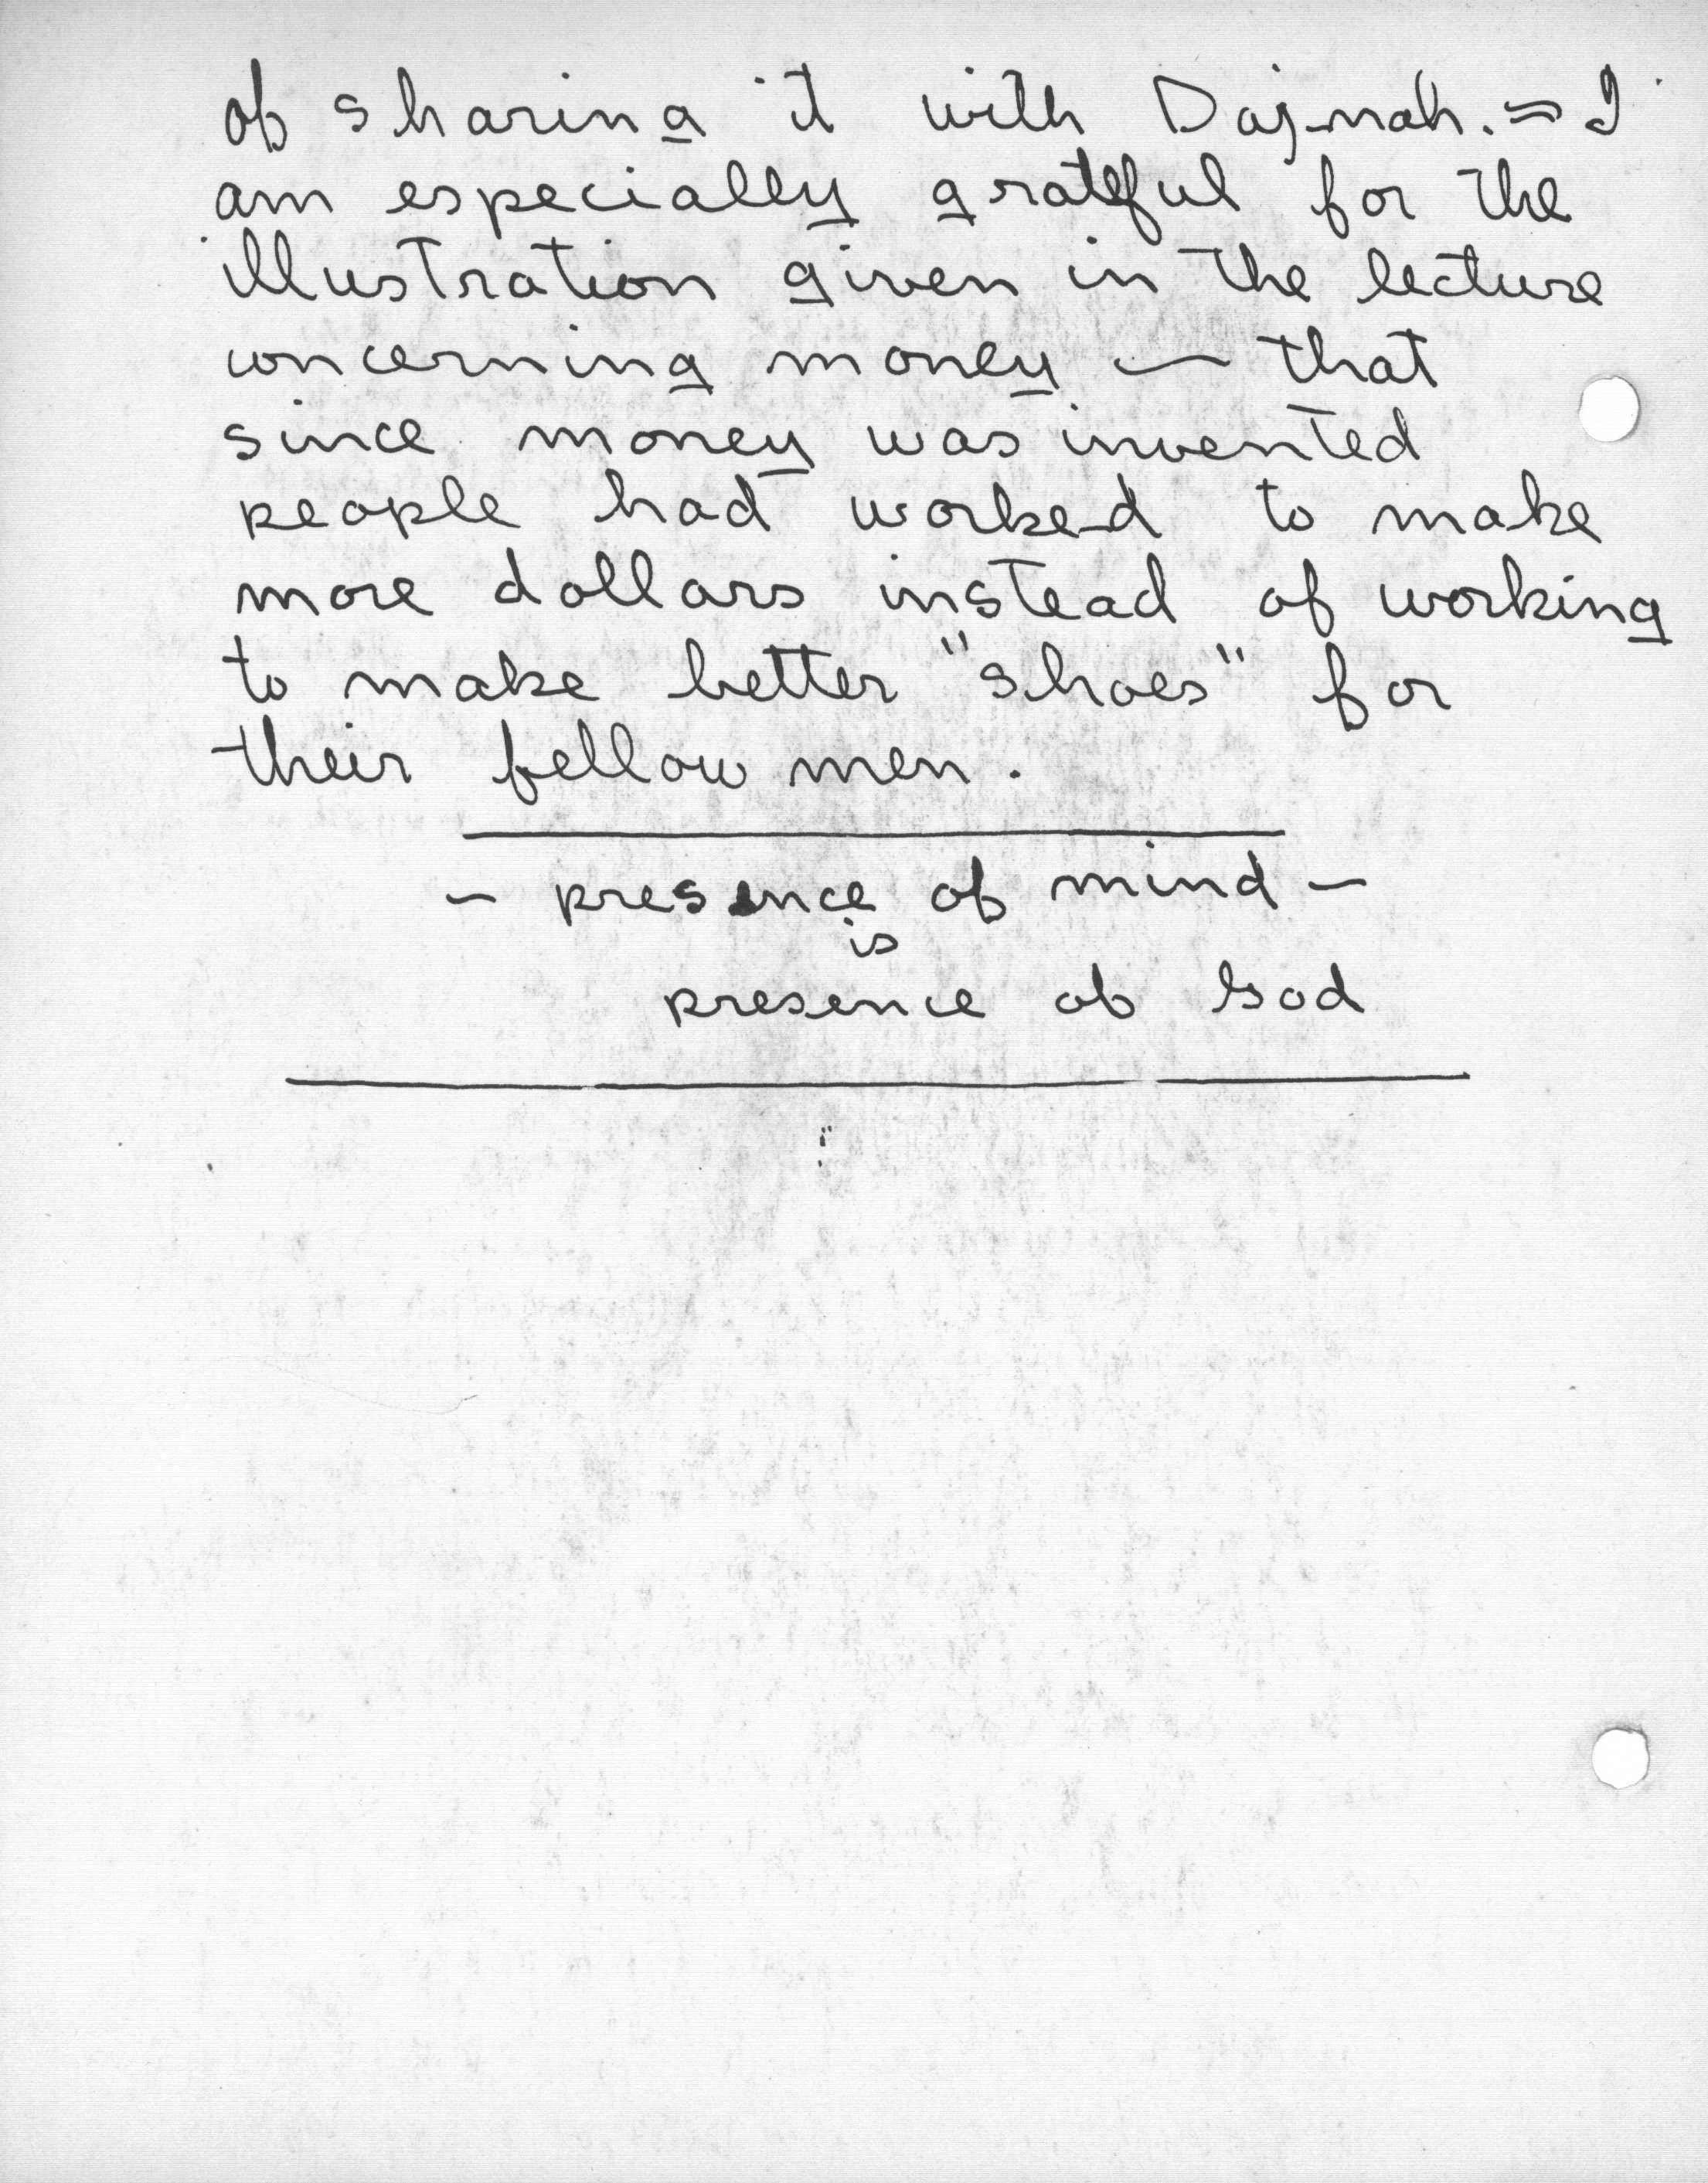 of sharing it with Dajmah. = I
am especially grateful for the
illustration given in the lecture
concerning money — that
since money was invented
people had worked to make
more dollars instead of working
to make better "shoes" for
their fellow men.
- presence of mind -
is
presence of God